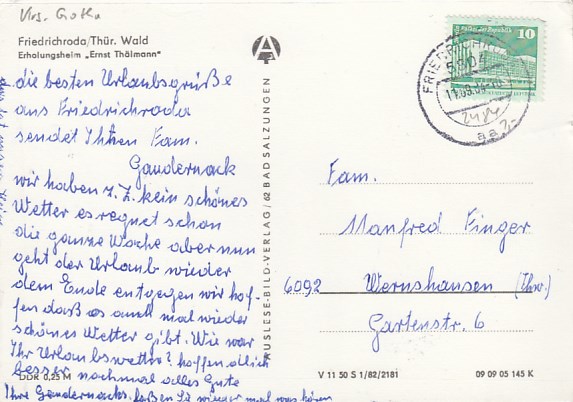 Krs. Gotha
Friedrichroda/Thür. Wald
Erholungsheim „Ernst Thälmann"
die besten Urlaubsgrüße
aus Friedrichroda
sendet Ihnen Fam.
Gaudernack
wir haben z. Z. kein schönes
Wetter es regnet schon
die ganze Woche aber nun
geht der Urlaub wieder
dem Ende entgegen wir hof-
fen daß es auch mal wieder
schönes Wetter gibt. Wie war
Ihr Urlaubswetter? hoffendlich
besser nochmal alles Gute
DDR 0,25 M
Ihre Gaudernacks laßen Sie wieder mal was hören
AUSLESE-BILD-VERLAG / 62 BAD SALZUNGEN
A
10
FRIEDRICH
5804
aa
Fam.
Manfred Finger
6092 Wernshausen (Thür.)
Gartenstr. 6
V 11 50 S 1/82/2181
09 09 05 145 K